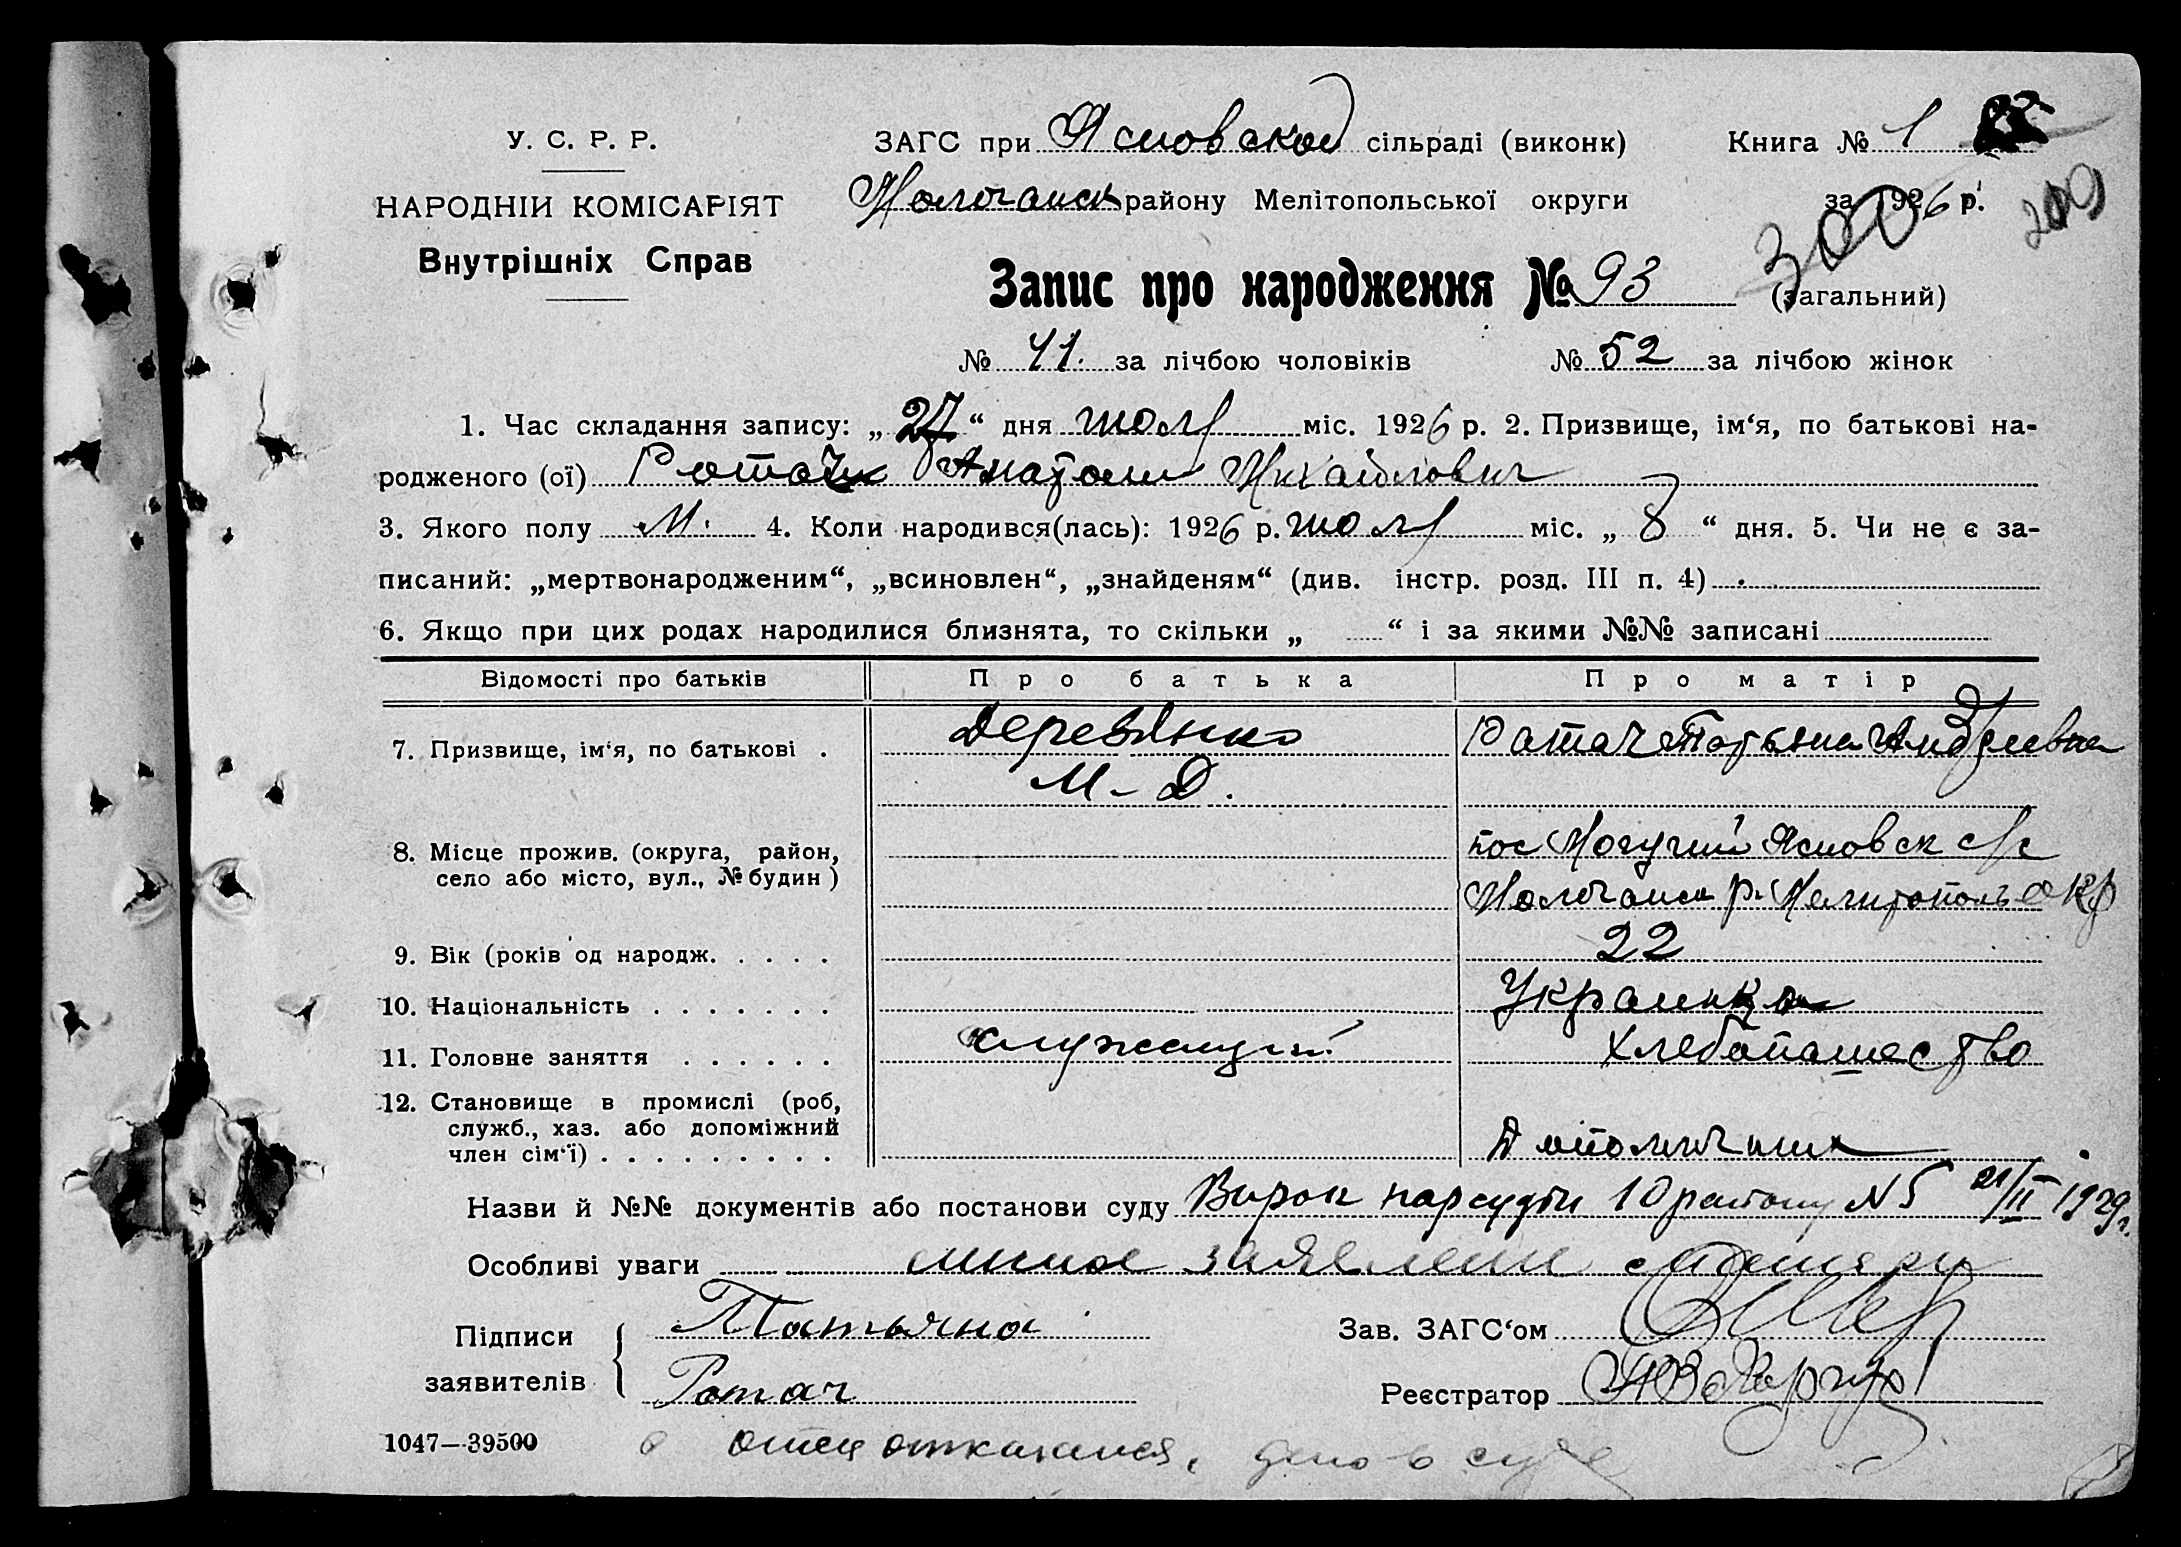 У. С. Р. Р.
НАРОДНІЙ КОМІСАРІЯТ
Внутрішніх Справ
ЗАГС при Ясновской сільраді (виконк)
Молочанск району Мелітопольської округи
Книга № 1
за 1926 р.
300
209
Запис про народження № 93 (загальний)
№ 41. за лічбою чоловіків № 52 за лічбою жінок
1. Час складання запису: „27“ дня июля міс. 1926 р. 2. Призвище, ім‘я, по батькові на-
родженого (ої) Ротач Анатоли Михайлович
3. Якого полу М. 4. Коли народився(лась): 1926 р. июля міс. „8“ дня. 5. Чи не є за-
писаний: „мертвонародженим“, „всиновлен“, „знайденям“ (див. інстр. розд. III п. 4)
6. Якщо при цих родах народилися близнята, то скільки „ “ і за якими №№ записані
Відомості про батьків Про батька Про матір
7. Призвище, ім‘я, по батькові . Деревянко Ротач Татьяна Андреевна
М-Д.
8. Місце прожив. (округа, район, пос Могучий Ясновск с/с
село або місто, вул., № будин) Молочанск р. Мелитополь окр
9. Вік (років од народж. . . . . 22
10. Національність . . . . . . . Украинка
11. Головне заняття . . . . . . служащий. хлебопашество
12. Становище в промислі (роб,
служб., хаз. або допоміжний
член сім‘ї) . . . . . . . . .
Назви й №№ документів або постанови суду Вирок нарсудти 10 району N5 21/II-1929г.
Особливі уваги заявлени
Підписи Татьяна
заявителів Ротач
Зав. ЗАГС‘ом
Реєстратор
1047—39500
отец отказался, дело в суде